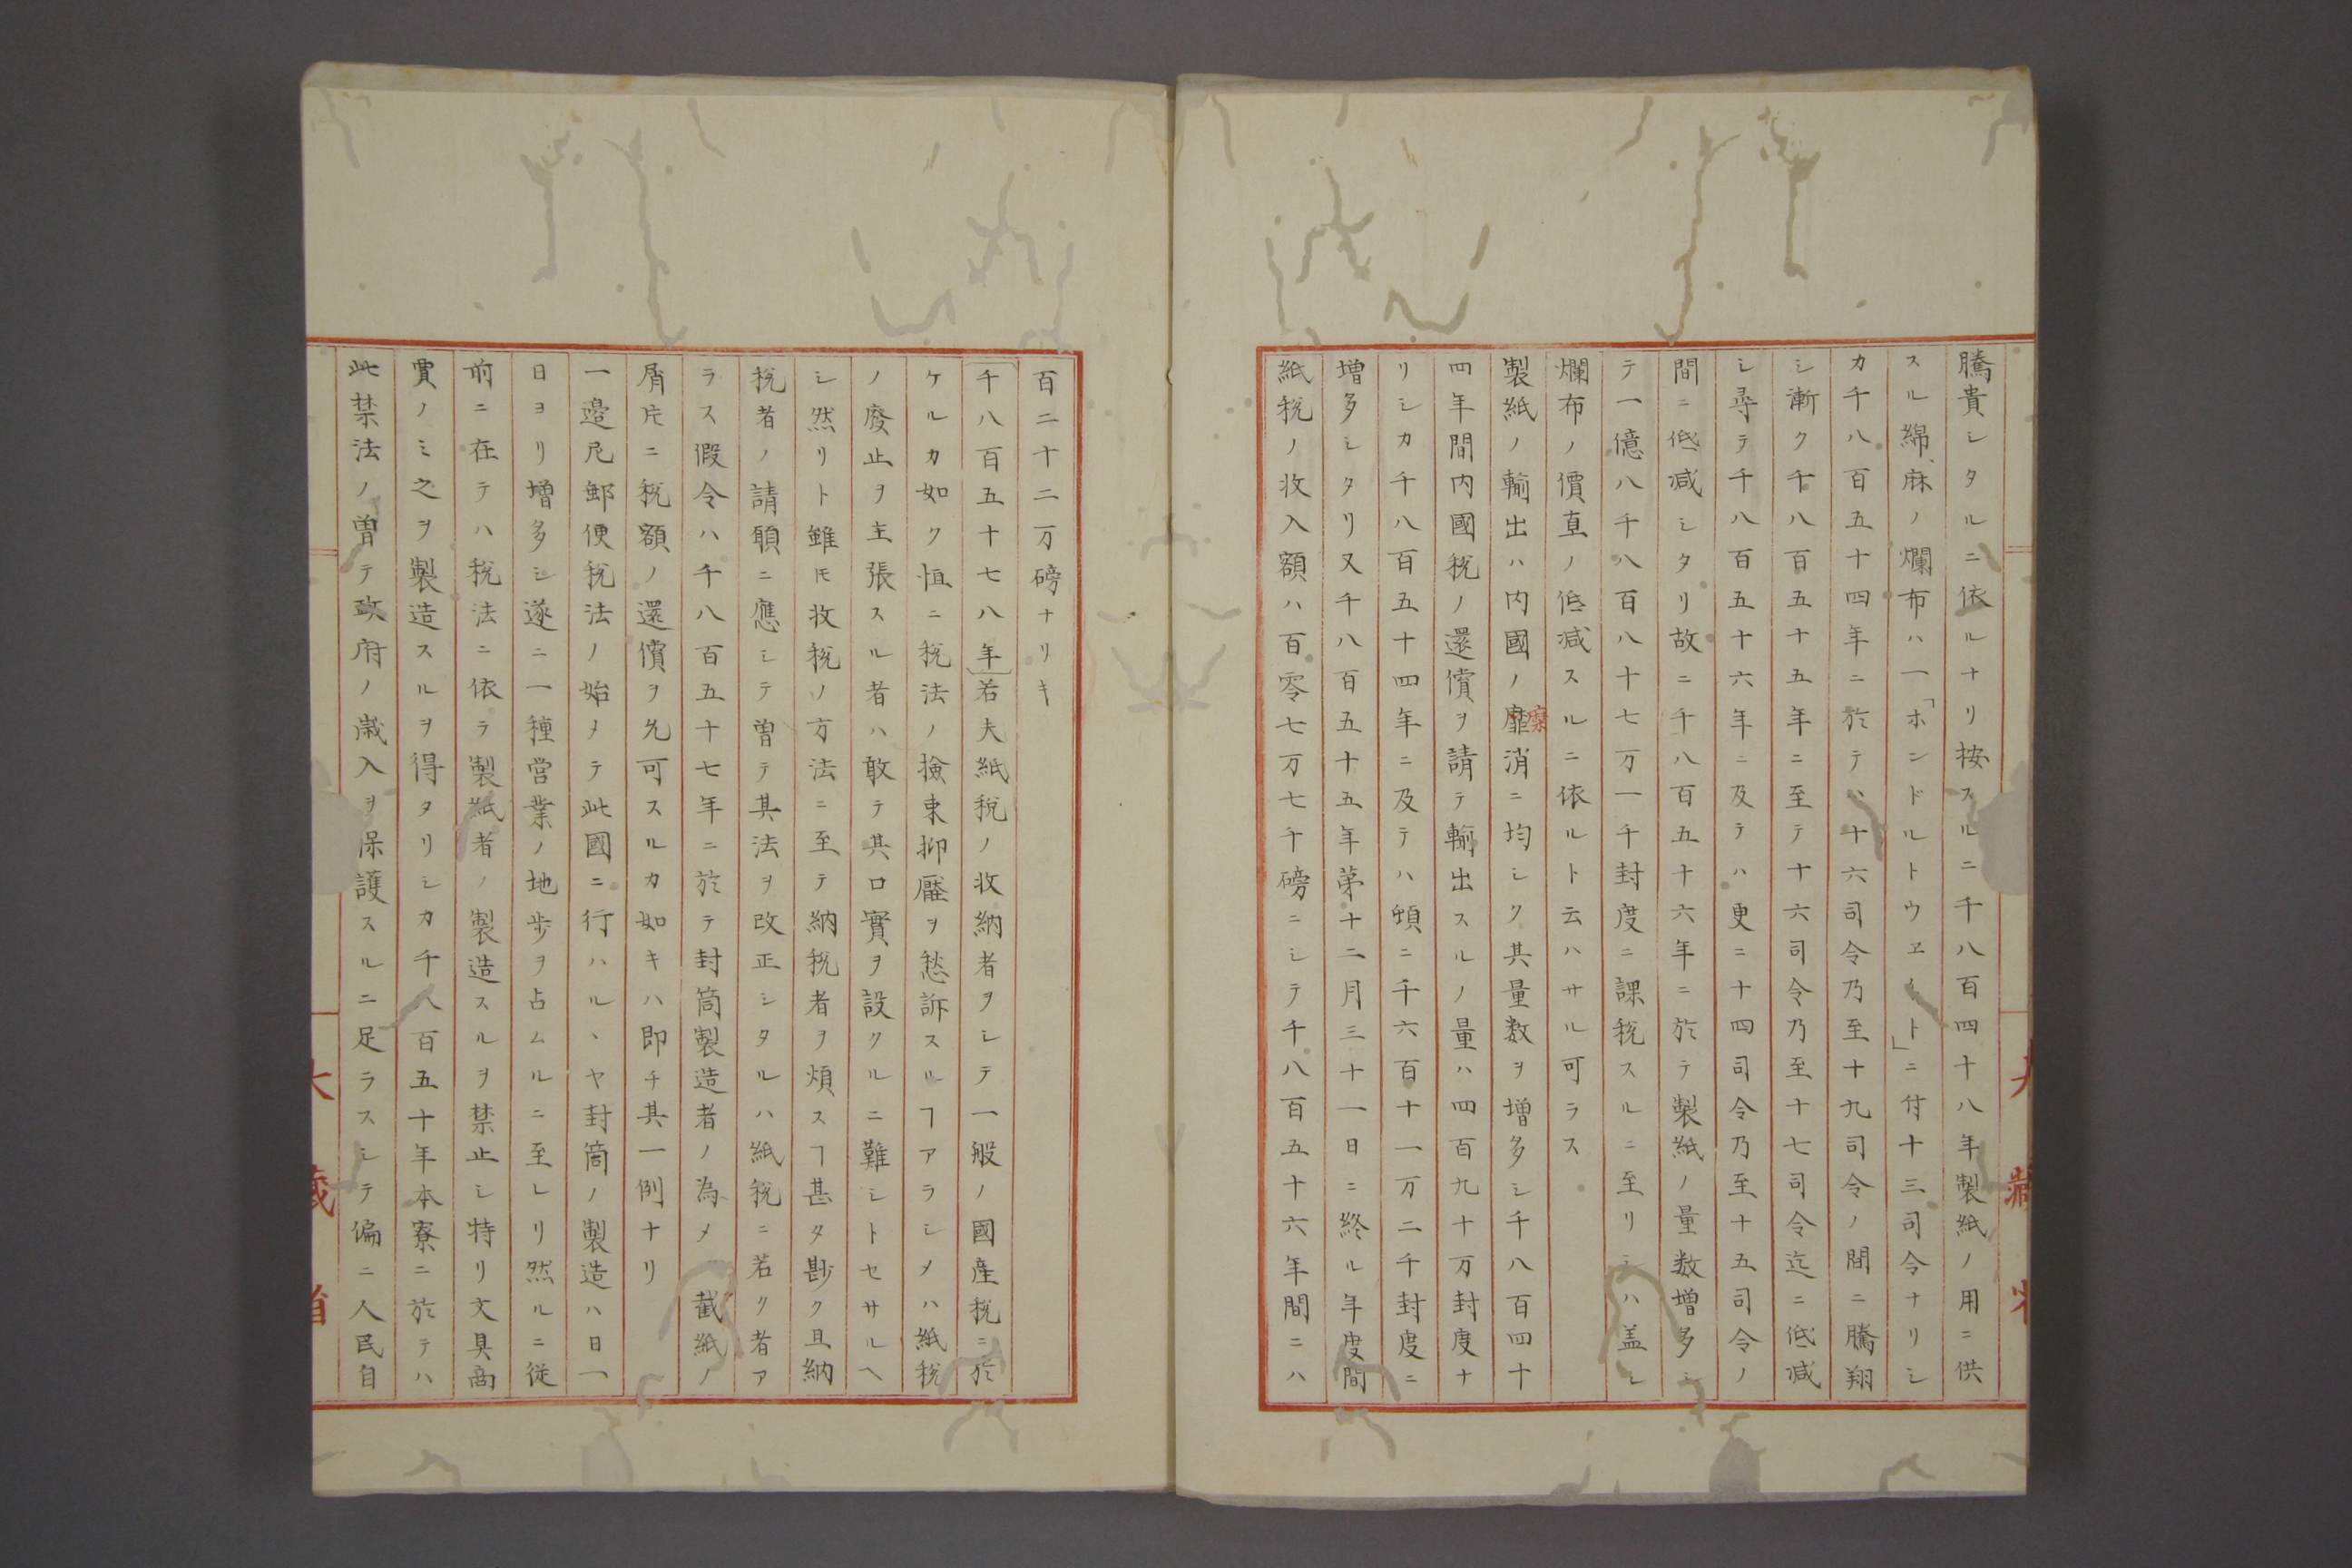 騰貴シタルニ依ルナリ按スルニ千八百四十八年製紙ノ用ニ供
スル綿、麻ノ爛布ハ一「ホンドルトウヱイト」ニ付十三司令ナリシ
カ千八百五十四年ニ於テハ十六司令乃至十九司令ノ間ニ騰翔
シ漸ク千八百五十五年ニ至テ十六司令乃至十七司令迄ニ低減
シ尋テ千八百五十六年ニ及テハ更ニ十四司令乃至十五司令ノ
間ニ低減シタリ故ニ千八百五十六年ニ於テ製紙ノ量数増多シ
テ一億八千八百八十七万一千封度ニ課税スルニ至リシハ盖シ
爛布ノ價直ノ低減スルニ依ルト云ハサル可ラス
製紙ノ輸出ハ内國ノ靡糜消ニ均シク其量数ヲ増多シ千八百四十
四年間内國税ノ還償ヲ請テ輸出スルノ量ハ四百九十万封度ナ
リシカ千八百五十四年ニ及テハ頓ニ千六百十一万二千封度ニ
増多シタリ又千八百五十五年第十二月三十一日ニ終ル年度間
紙税ノ收入額ハ百零七万七千磅ニシテ千八百五十六年間ニハ
大藏省
百二十二万磅ナリキ
〔千八百五十七八年〕若夫紙税ノ收納者ヲシテ一般ノ國産税ニ於
ケルカ如ク恒ニ税法ノ撿束抑壓ヲ愁訴スルヿアラシメハ紙税
ノ廢止ヲ主張スル者ハ敢テ其口實ヲ設クルニ難シトセサルヘ
シ然リト雖モ收税ノ方法ニ至テ納税者ヲ煩スヿ甚タ尠ク且納
税者ノ請願ニ應シテ曽テ其法ヲ改正シタルハ紙税ニ若ク者ア
ラス假令ハ千八百五十七年ニ於テ封筒製造者ノ為メ截紙ノ
屑片ニ税額ノ還償ヲ允可スルカ如キハ即チ其一例ナリ
一邉尼郵便税法ノ始メテ此國ニ行ハルヽヤ封筒ノ製造ハ日一
日ヨリ増多シ遂ニ一種営業ノ地歩ヲ占ムルニ至レリ然ルニ従
前ニ在テハ税法ニ依ラ製紙者ノ製造スルヲ禁止シ特リ文具商
賈ノミ之ヲ製造スルヲ得タリシカ千八百五十年本寮ニ於テハ
此禁法ノ曽テ政府ノ歳入ヲ保護スルニ足ラスシテ偏ニ人民自
大藏省